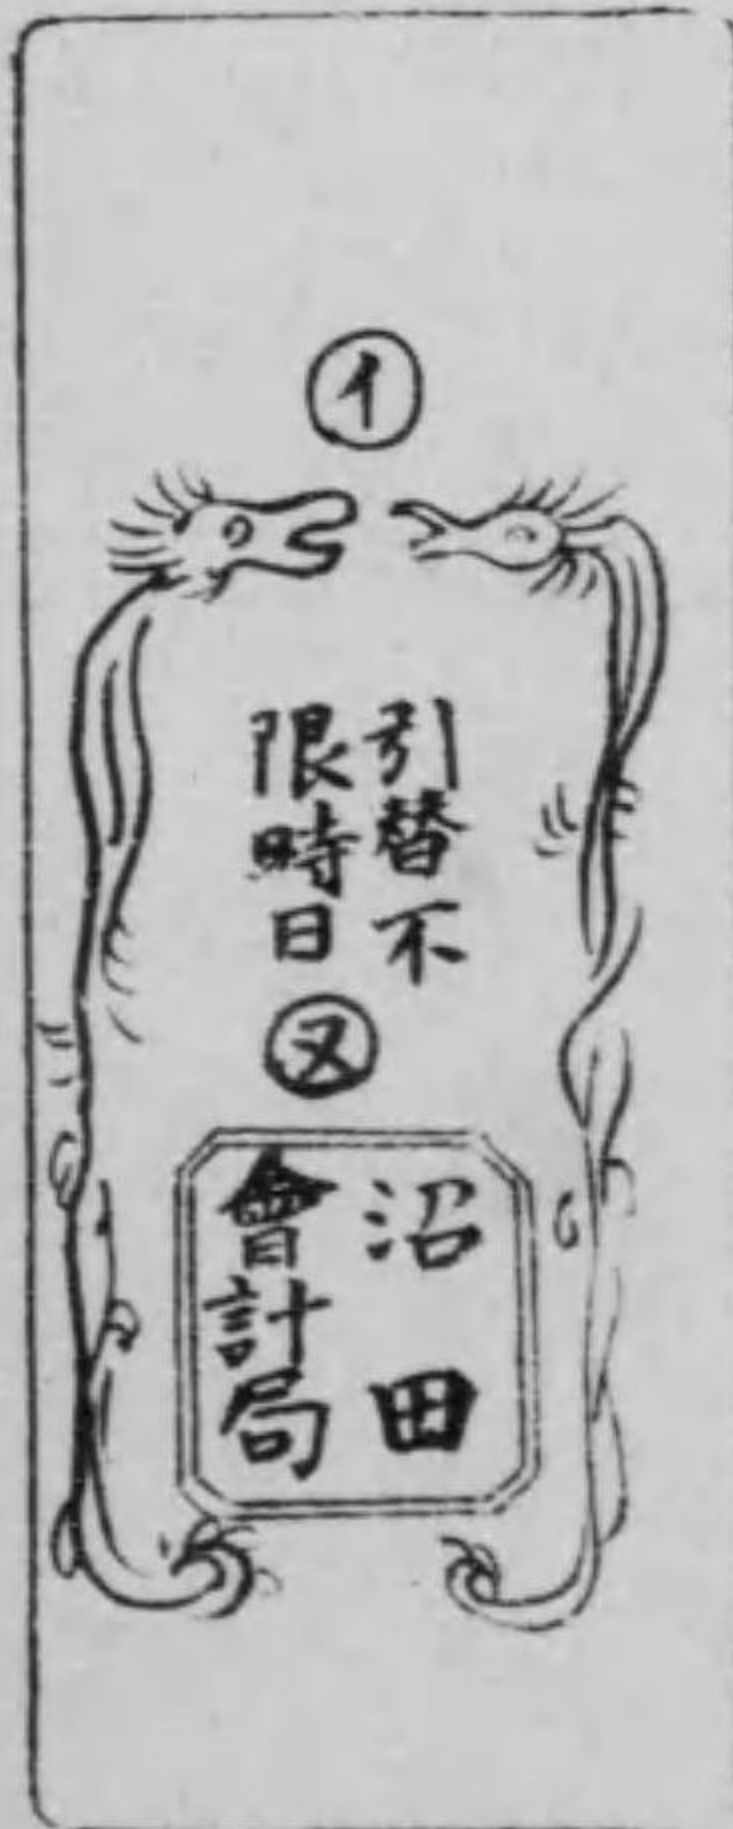 イ
引替不
限時日
又
沼田
會計局